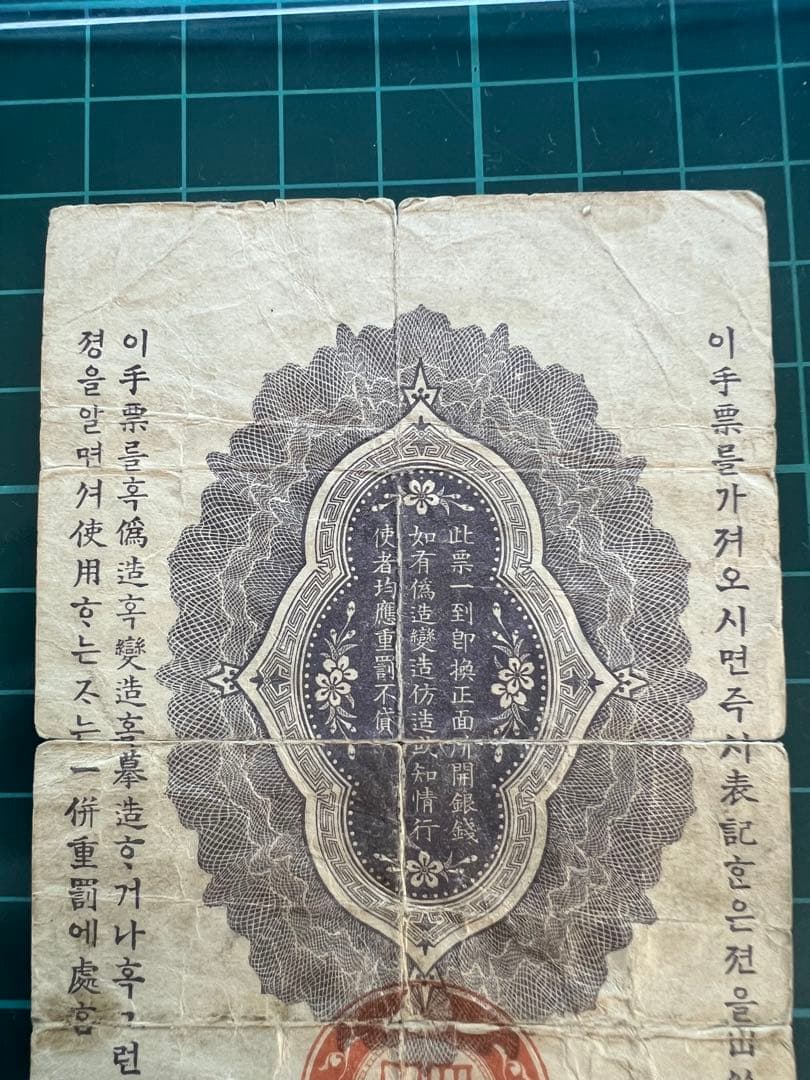 이手票를가져오시면즉시表記ᄒᆞᆫ은젼을出
此票一到卽換正面所開銀錢
如有僞造變造仿造或知情行
使者均應重罰不貸
이手票를혹僞造혹變造혹摹造ᄒᆞ거나혹ᄀᆞ런
졍을알면셔使用ᄒᆞᄂᆞᆫᄌᆞᄂᆞᆫ一併重罰에處ᄒᆞᆷ